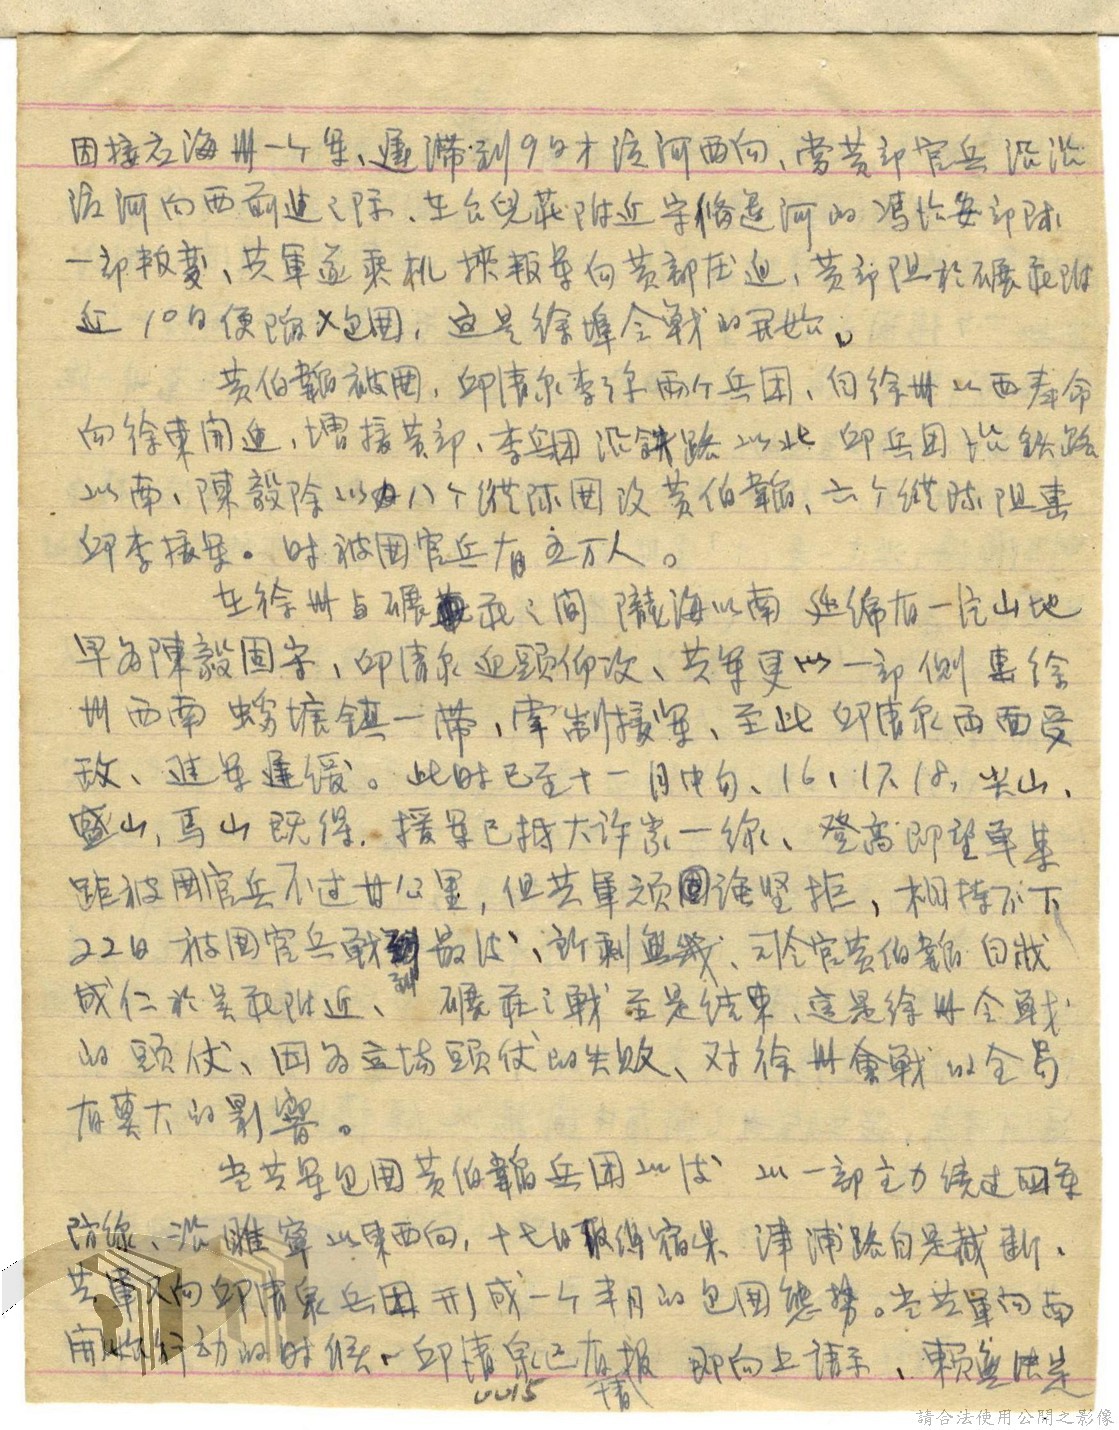 因接应海州一个军、遲滯到9日才沿河西向、當黄部官兵沿
河向西前进之际、在台兒莊附近守備运河的馮治安部队
一部叛變、共軍遂乘机挾叛军向黄部压迫、黄部阻於碾莊附
近10日便陷入包围，这是徐埠会戰的開始。
黄伯韜被围，邱清泉李弥兩个兵团、自徐州以西奉命
向徐東開进、增援黄部、李兵团沿鉄路以北 邱兵团沿鉄路
以南、陳毅除以八个縱队围攻黄伯韜，六个縱队阻擊
邱李援军。时被围官兵有五万人。
在徐州与碾莊之间 隴海以南 有一片山地
早为陳毅固守、邱清泉迎頭仰攻、共军更以一部側擊徐
州西南 塘鎮一带，牽制援军、至此邱清泉两面受
敌、进军遲缓。此时已至十一月中旬、16，17，18，尖山、
山，馬山既得，援军已抵大许家一線、登高即望
距被围官兵不过廿公里，但共軍顽强坚拒，相持不下
22日 被围官兵戰到最後、所剩無幾、司令官黄伯韜自戕
成仁於吴莊附近、碾莊之戰至是结束、這是徐州会戰
的頭仗、因为这場頭仗的失败、对徐州會戰的全局
有莫大的影響。
当共军包围黄伯韜兵团以後 以一部主力绕过国军
防線、沿睢寧以東西向，十七日取得宿県 津浦路自是截断、
共軍又向邱清泉兵团形成一个半月的包围態势。当共軍向南
開始行动的时候、邱清泉已有情报 即向上請示、賴無决定
0015
請合法使用公開之影像